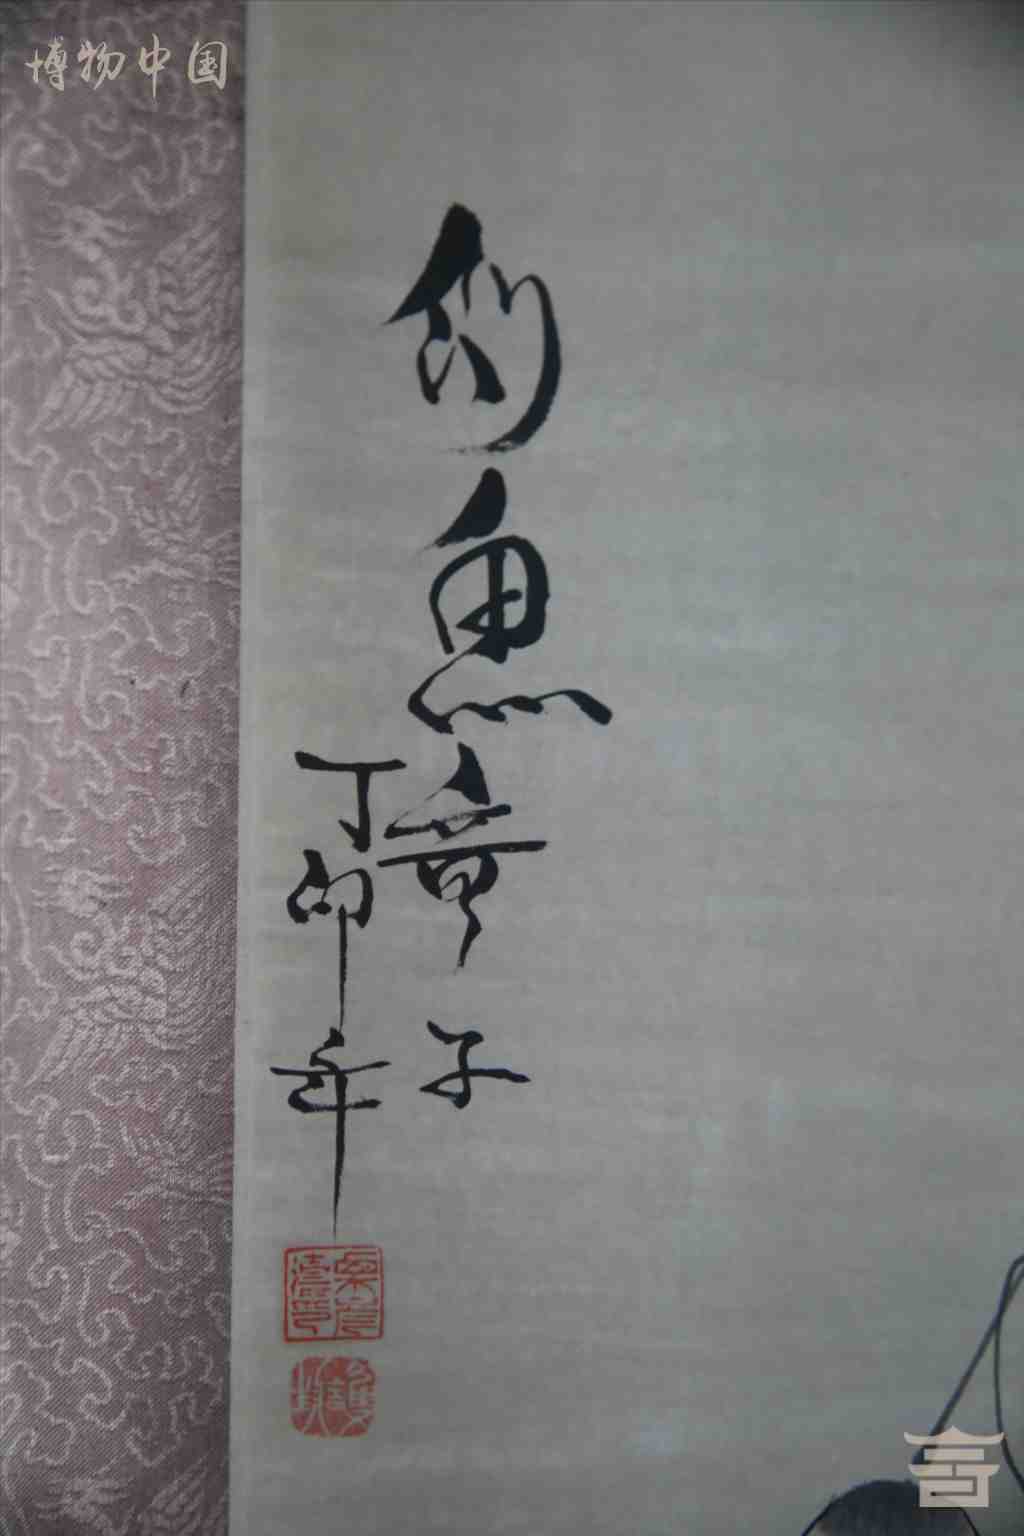 博物中国
釣魚童子
丁卯年